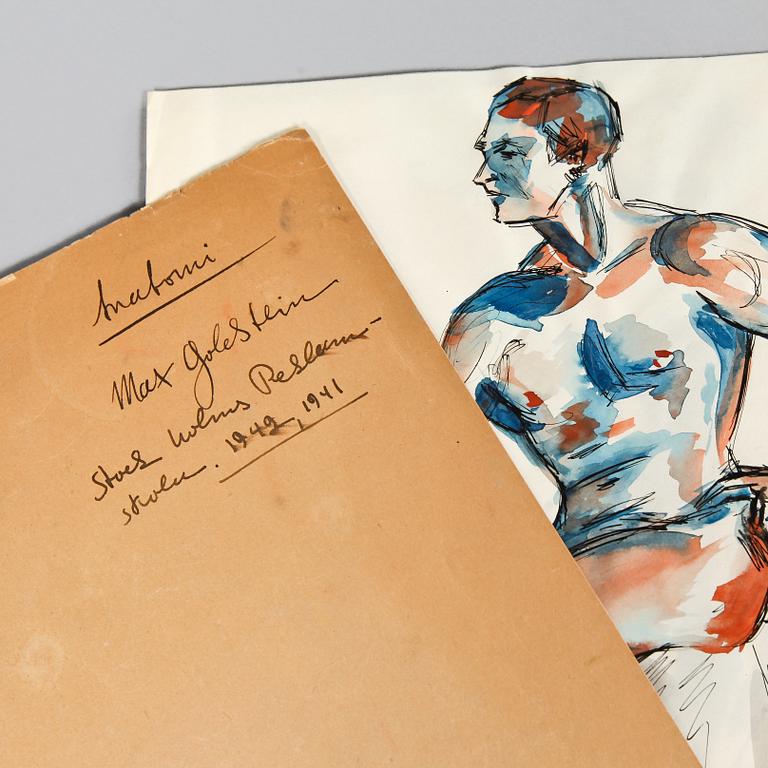 Anatomi
Max Goldstein
Stockholms Reklam-
skola. 1942, 1941